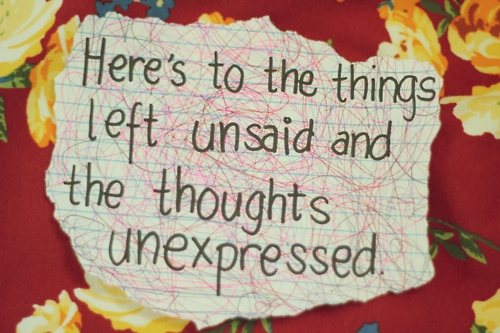 Here's to the things
left unsaid and
the thoughts
unexpressed.